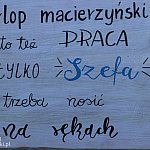 rlop macierzyński
to też DRACA
TYLKO Szefa
trzeba nosić
na rękach